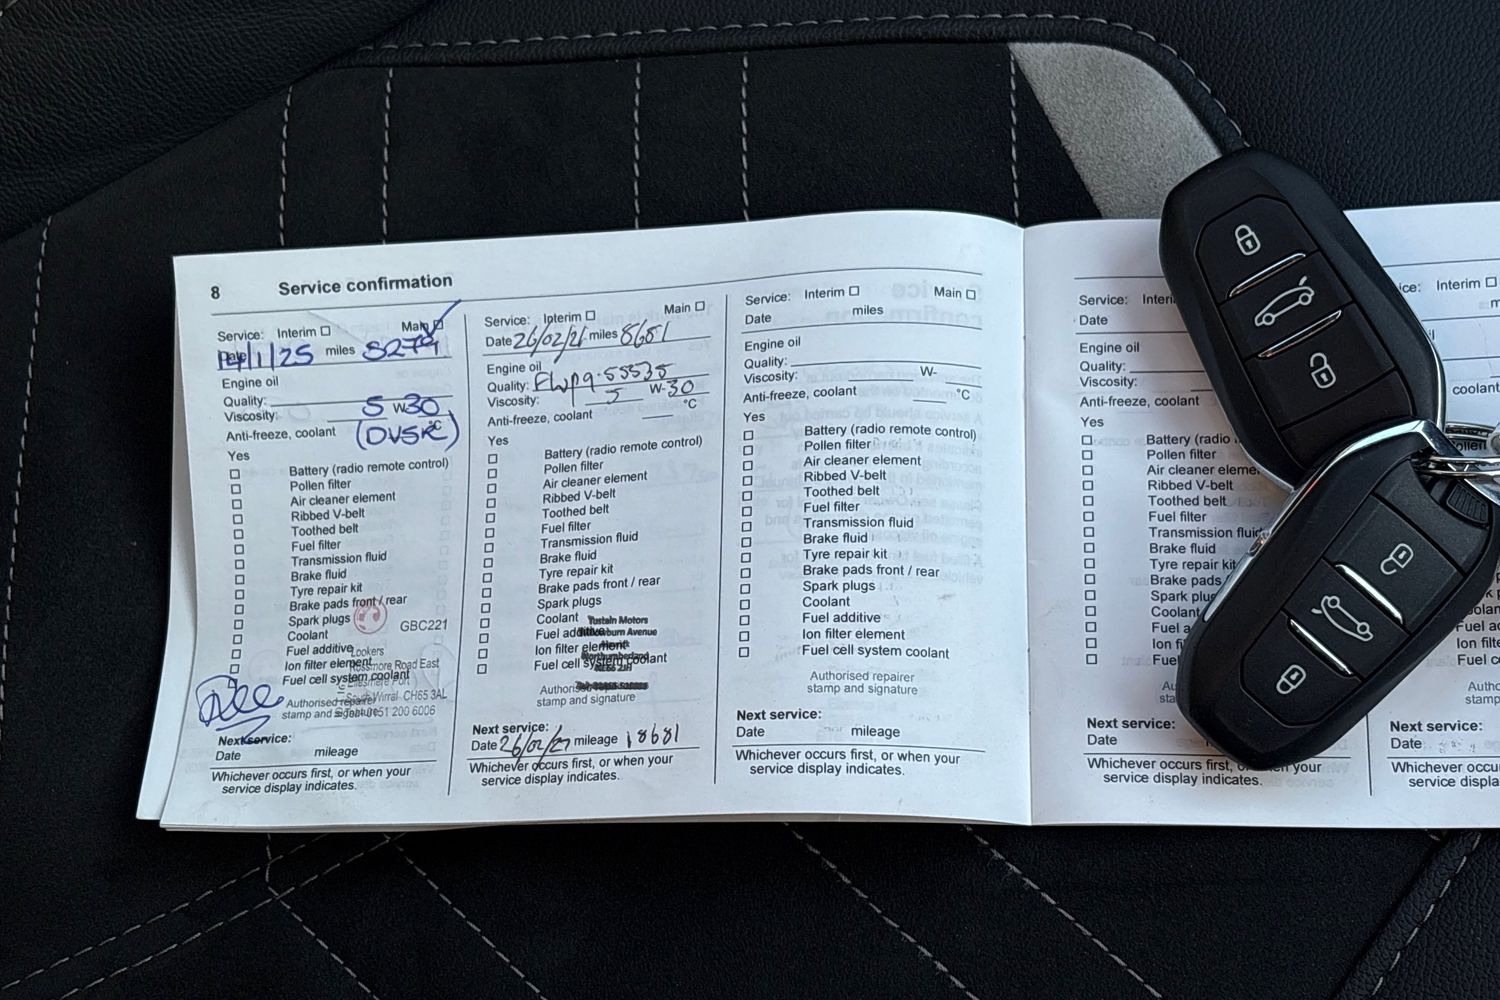 8 Service confirmation
Service: Interim ☐ Main ☐
Date 14/1/25 miles 8274
Engine oil
Quality:
Viscosity: 5 W30
Anti-freeze, coolant °C
(OVSK)
Yes
☐ Battery (radio remote control)
☐ Pollen filter
☐ Air cleaner element
☐ Ribbed V-belt
☐ Toothed belt
☐ Fuel filter
☐ Transmission fluid
☐ Brake fluid
☐ Tyre repair kit
☐ Brake pads front / rear
☐ Spark plugs
☐ Coolant
☐ Fuel additive
☐ Ion filter element
☐ Fuel cell system coolant
GBC221
Lookers
Rossmore Road East
Ellesmere Port
South Wirral CH65 3AL
Authorised repairer
stamp and signature
Next service:
Date mileage
Whichever occurs first, or when your
service display indicates.
Service: Interim ☐ Main ☐
Date 26/02/26 miles 8681
Engine oil
Quality:
Viscosity: 5 W-30
Anti-freeze, coolant °C
Yes
☐ Battery (radio remote control)
☐ Pollen filter
☐ Air cleaner element
☐ Ribbed V-belt
☐ Toothed belt
☐ Fuel filter
☐ Transmission fluid
☐ Brake fluid
☐ Tyre repair kit
☐ Brake pads front / rear
☐ Spark plugs
☐ Coolant
☐ Fuel additive
☐ Ion filter element
☐ Fuel cell system coolant
Tustain Motors
Avenue
Northumberland
Authorised
stamp and signature
Next service:
Date 26/02/27 mileage 18681
Whichever occurs first, or when your
service display indicates.
Service: Interim ☐ Main ☐
Date miles
Engine oil
Quality:
Viscosity: W-
Anti-freeze, coolant °C
Yes
☐ Battery (radio remote control)
☐ Pollen filter
☐ Air cleaner element
☐ Ribbed V-belt
☐ Toothed belt
☐ Fuel filter
☐ Transmission fluid
☐ Brake fluid
☐ Tyre repair kit
☐ Brake pads front / rear
☐ Spark plugs
☐ Coolant
☐ Fuel additive
☐ Ion filter element
☐ Fuel cell system coolant
Authorised repairer
stamp and signature
Next service:
Date mileage
Whichever occurs first, or when your
service display indicates.
Service:
Date
Engine oil
Quality:
Viscosity:
Anti-freeze, coolant
Yes
☐ Battery (radio
☐ Pollen filter
☐ Air cleaner
☐ Ribbed V-belt
☐ Toothed belt
☐ Fuel filter
☐ Transmission
☐ Brake fluid
☐ Tyre repair kit
☐ Brake pads
☐ Spark
☐ Coolant
☐ Fuel
☐ Ion
☐ Fuel
Next service:
Date
Whichever occurs first, or when your
service display indicates.
Interim ☐
coolant
Next service:
Date
Whichever
service